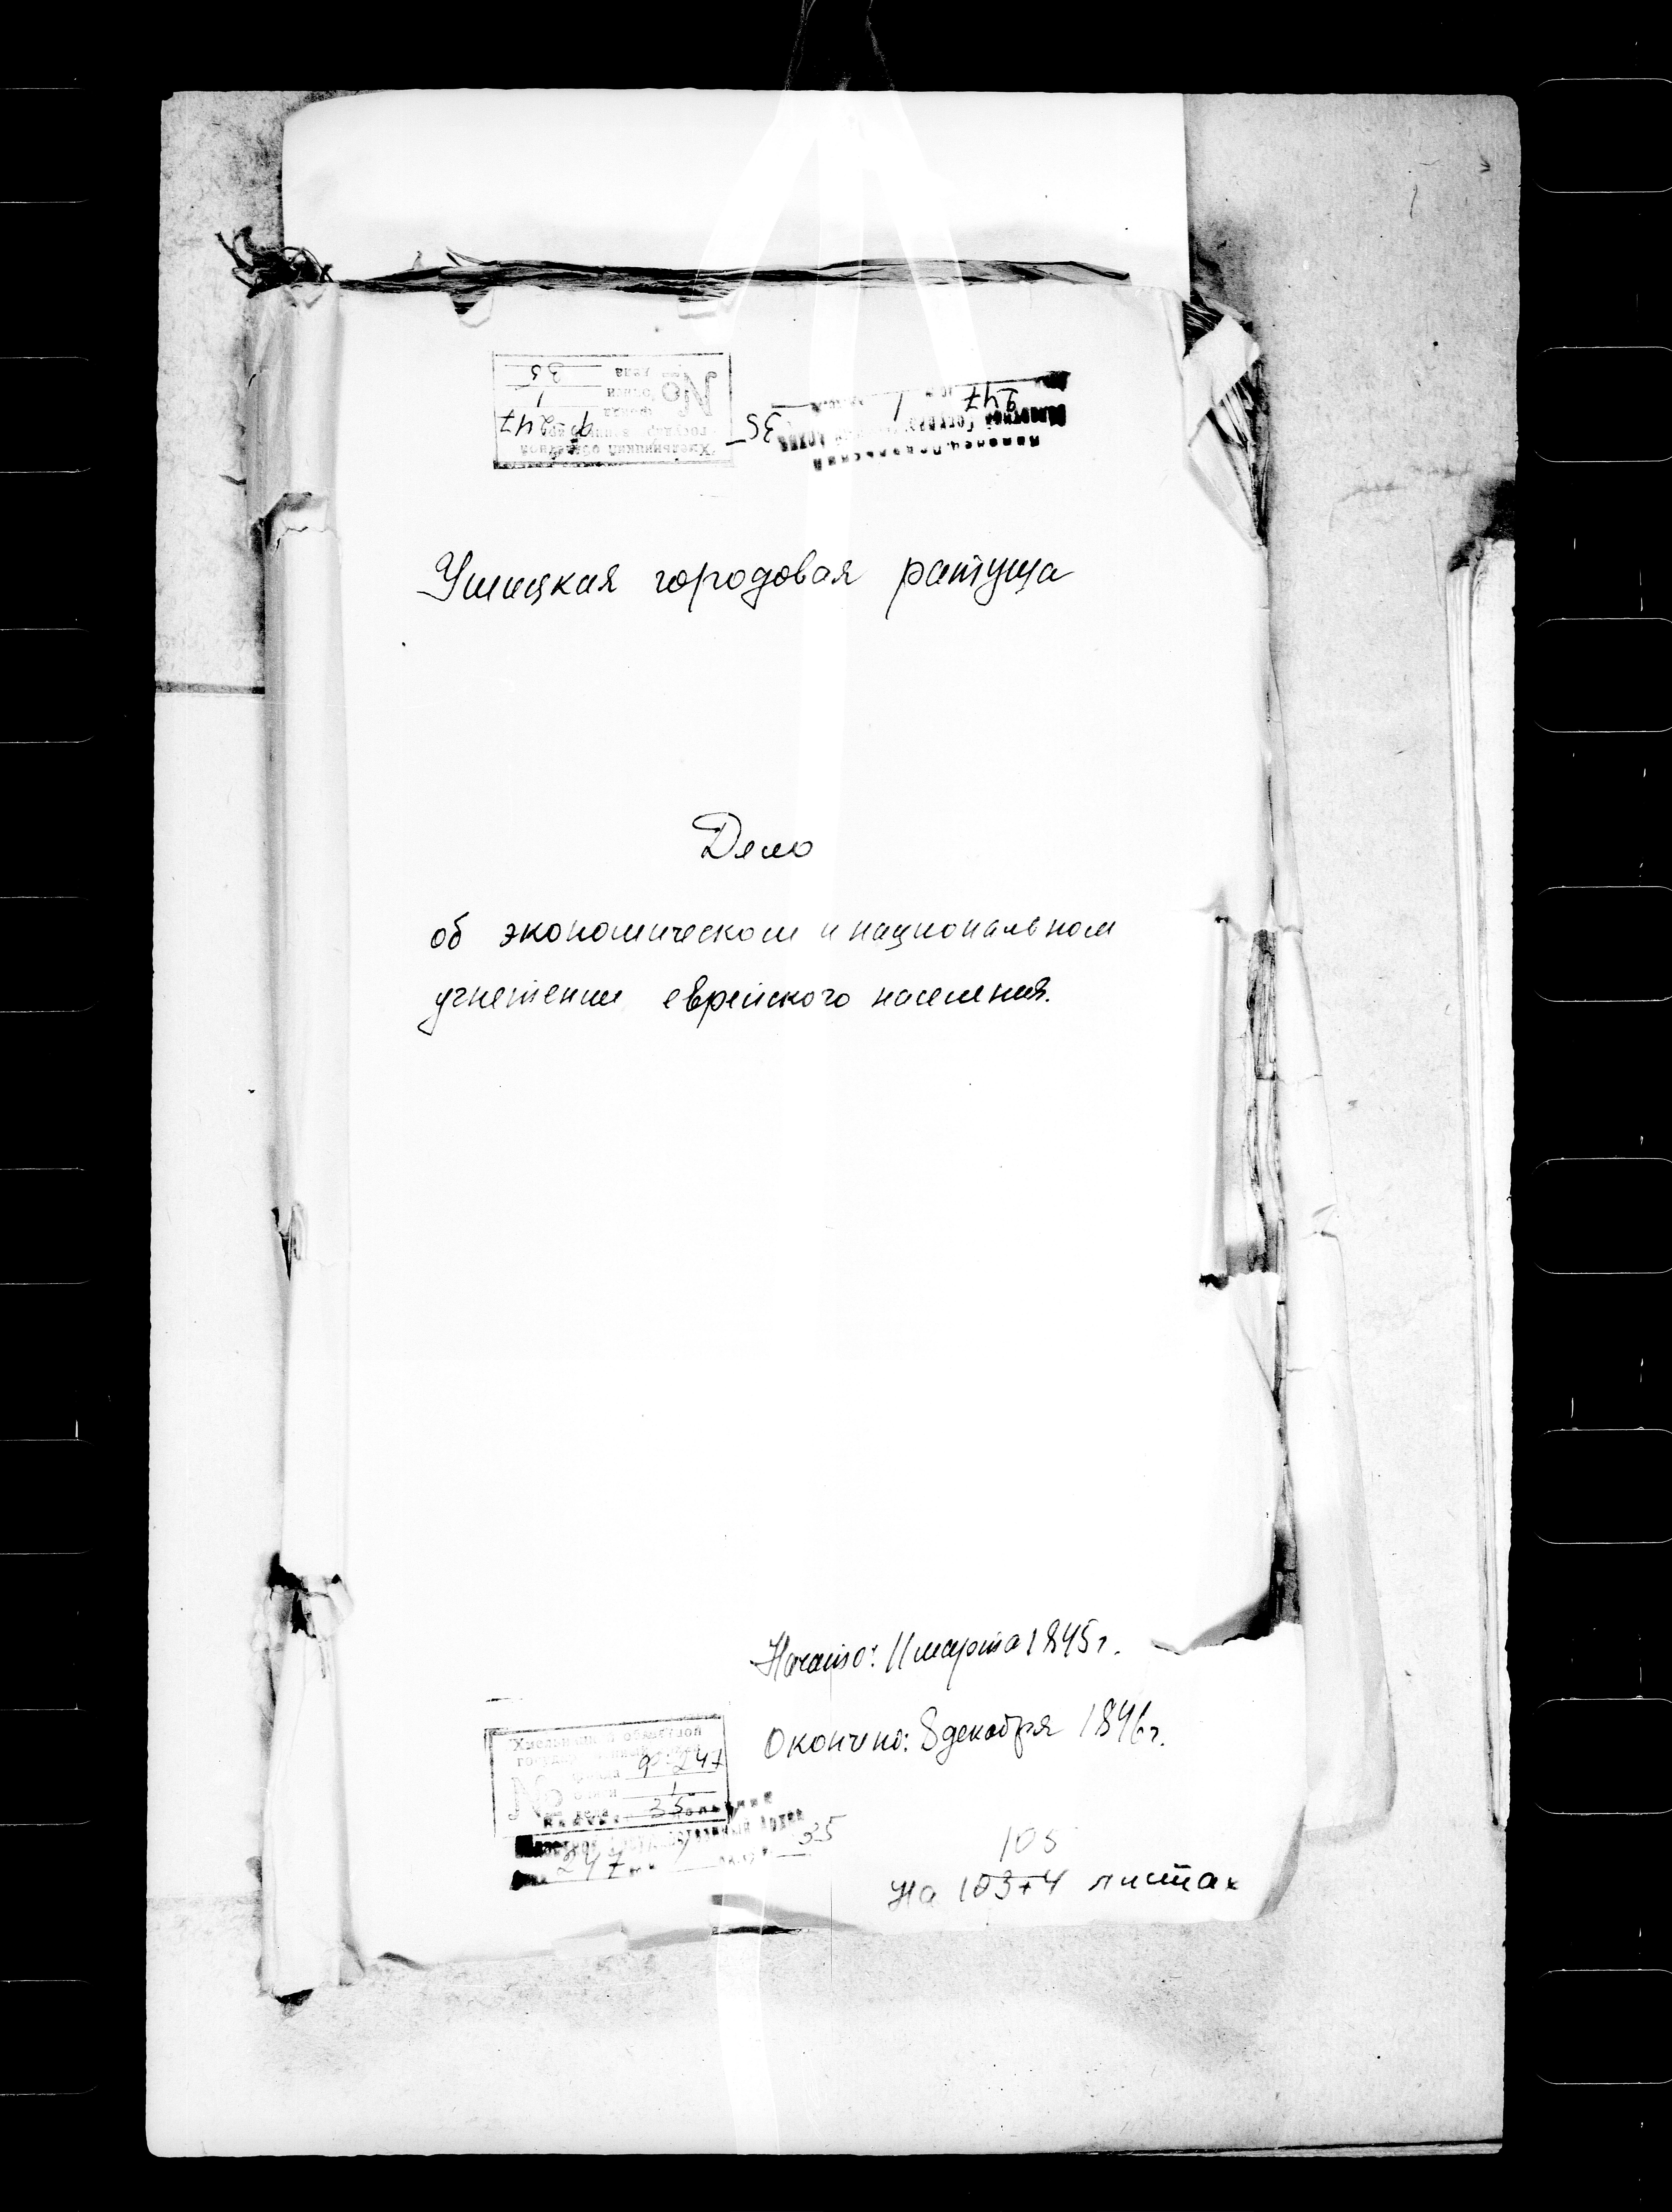 Хмельницкий областной
государ
фонда ф-247
№ описи 1
дела 35
Каменец-Подольский
Областной Государ Архив
247 1 35
Ушицкая городовая ратуша
Дело
об экономическом и национальном
угнетении еврейского населения.
Начато: 11 марта 1845 г.
Окончено: 8 декабря 1846 г.
Хмельницкий областной
государ
фонда ф-247
№ описи 1
дела 35
Областной Государственный Архив
247 1 35
105
На 103+4 листах